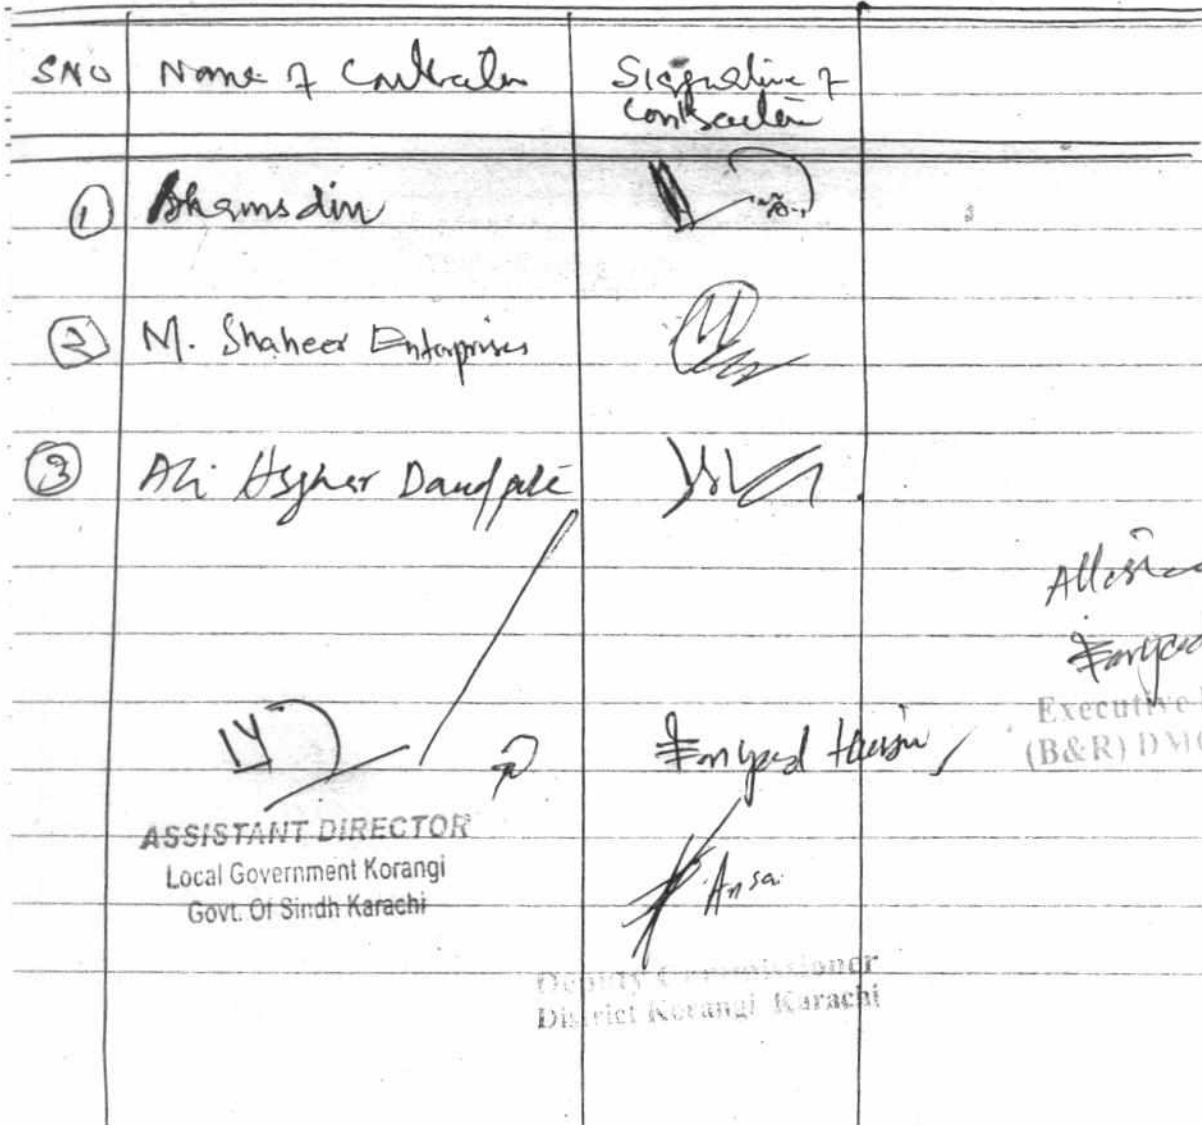 SNO Name of Contractor Signature of
Contractor
1 Shamsdin
2 M. Shaheer Enterprises
3 Ali Asghar Daudpota
Attested
Executive
(B&R) DMC
ASSISTANT DIRECTOR
Local Government Korangi
Govt. Of Sindh Karachi
Deputy Commissioner
District Korangi Karachi